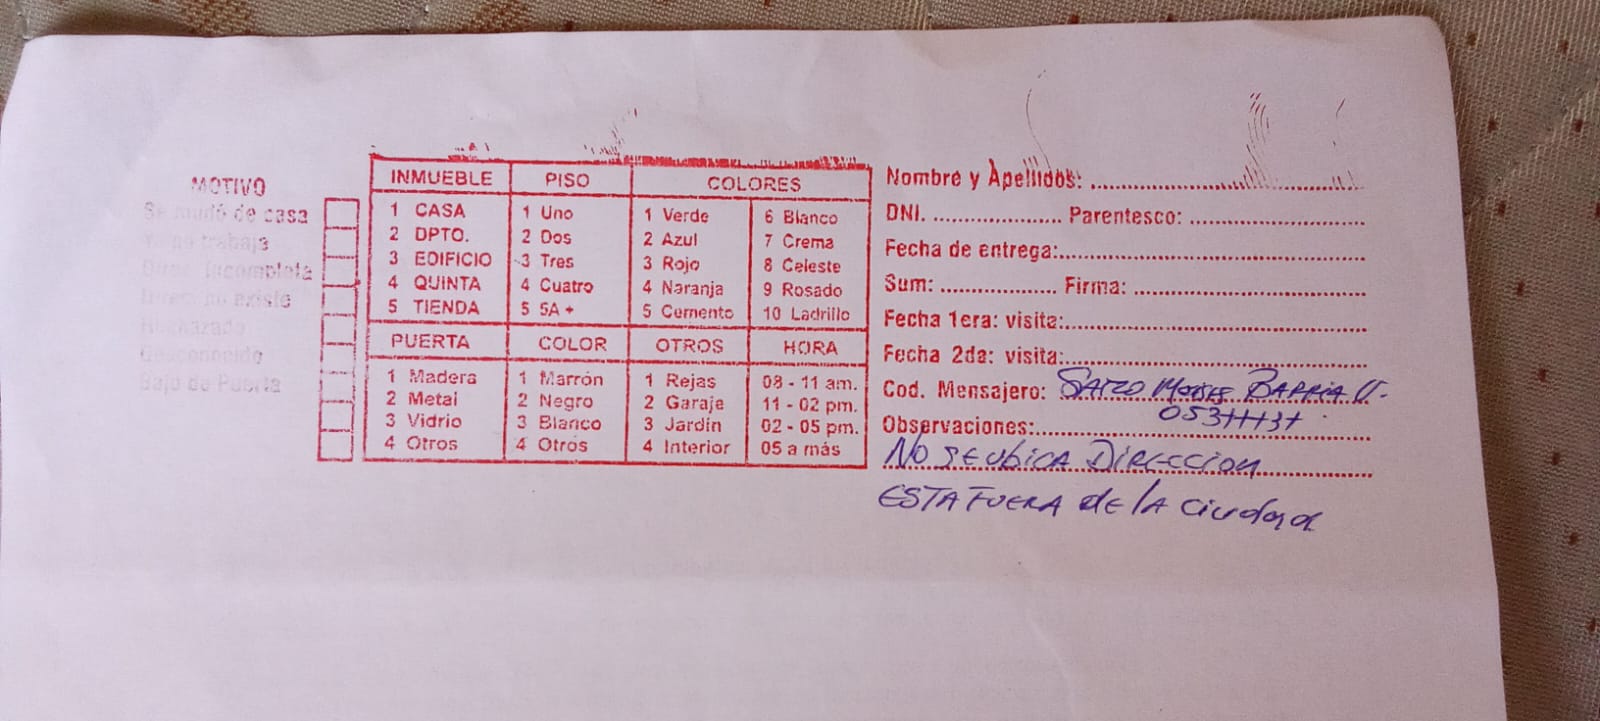 MOTIVO
Se mudó de casa
Ya no trabaja
Direc. Incompleta
Direc. no existe
Rechazado
Desconocido
Bajo de Puerta
INMUEBLE PISO COLORES
1 CASA 1 Uno 1 Verde 6 Blanco
2 DPTO. 2 Dos 2 Azul 7 Crema
3 EDIFICIO 3 Tres 3 Rojo 8 Celeste
4 QUINTA 4 Cuatro 4 Naranja 9 Rosado
5 TIENDA 5 5A + 5 Cemento 10 Ladrillo
PUERTA COLOR OTROS HORA
1 Madera 1 Marrón 1 Rejas 08 - 11 am.
2 Metal 2 Negro 2 Garaje 11 - 02 pm.
3 Vidrio 3 Blanco 3 Jardín 02 - 05 pm.
4 Otros 4 Otros 4 Interior 05 a más
Nombre y Apellidos:
DNI. Parentesco:
Fecha de entrega:
Sum: Firma:
Fecha 1era: visita:
Fecha 2da: visita:
Cod. Mensajero:
Observaciones:
NO SE UBICA DIRECCION
ESTA FUERA de LA Ciudad